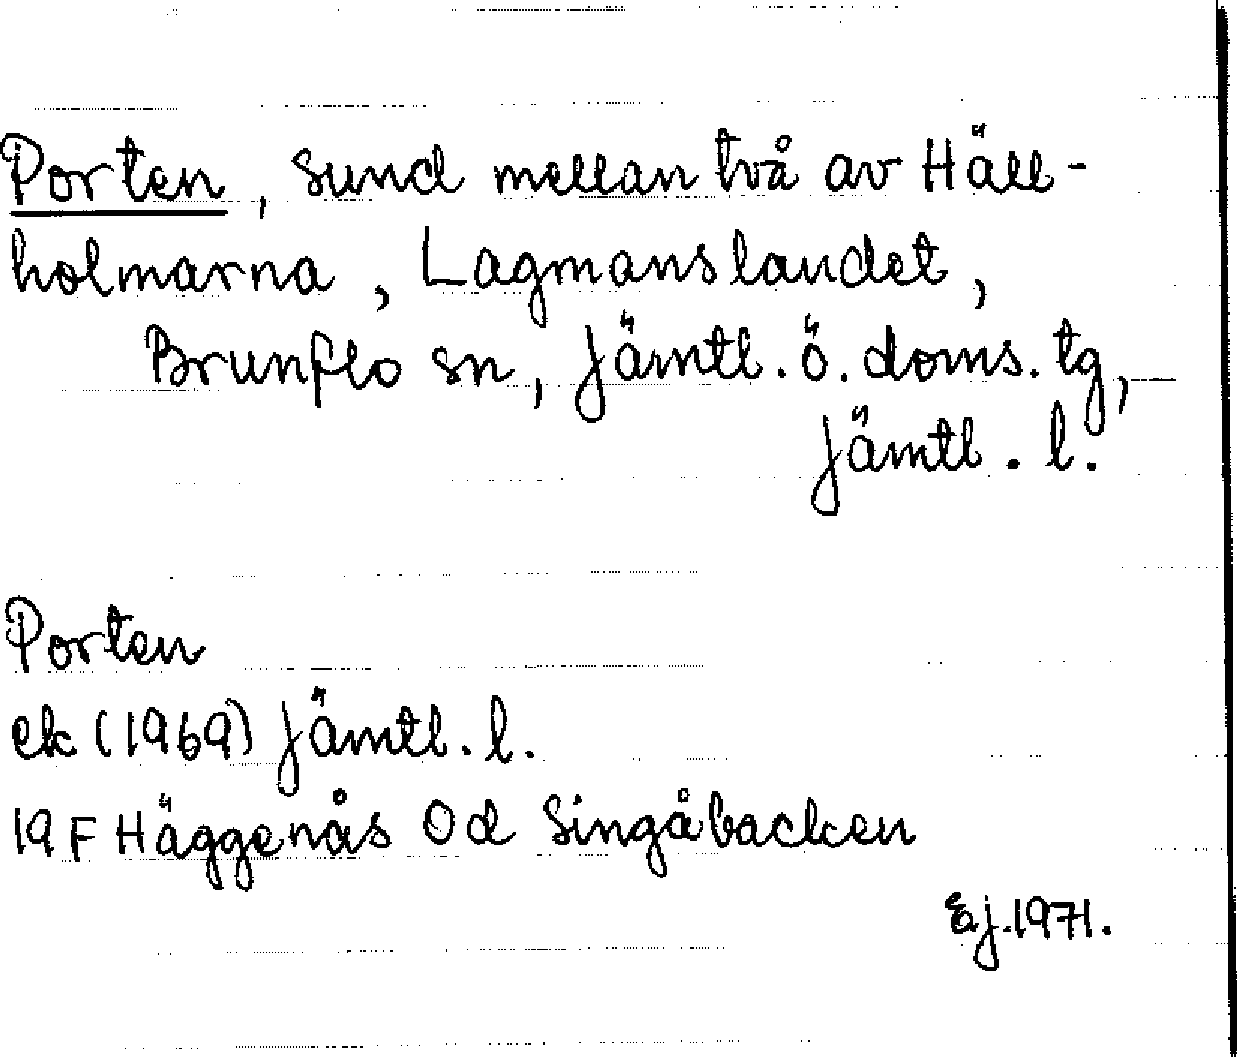 Porten, sund mellan två av Häll-
holmarna, Lagmanslandet,
Brunflo sn, Jämtl. ö. doms. tg,
Jämtl. l.
Porten
ek (1969) Jämtl. l.
19F Häggenås 0d Singåbacken
E.j. 1971.